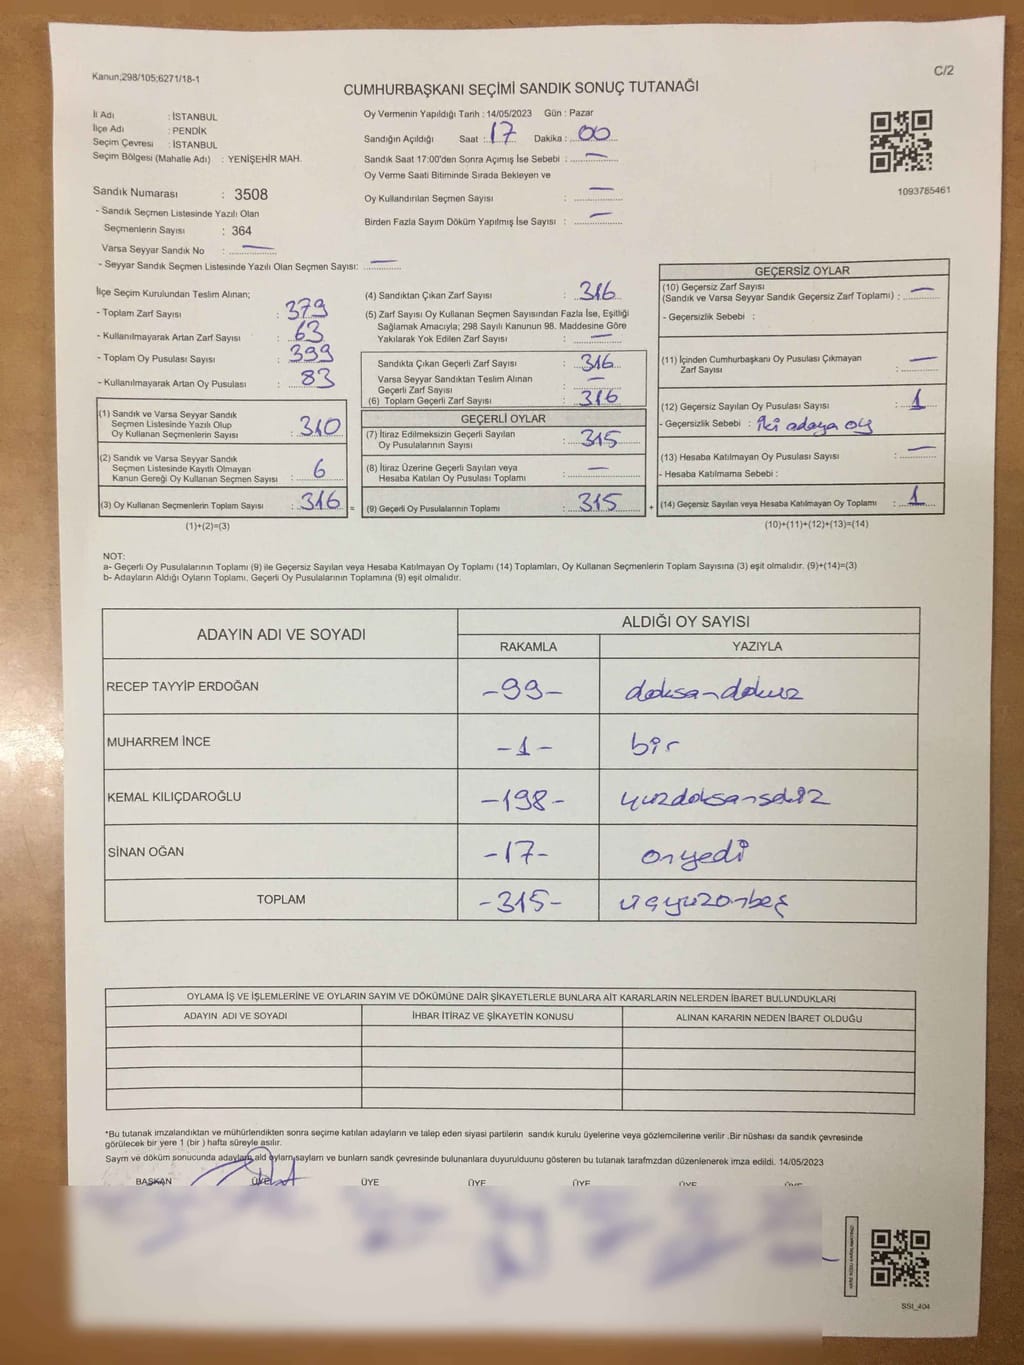 Kanun;298/105;6271/18-1
C/2
CUMHURBAŞKANI SEÇİMİ SANDIK SONUÇ TUTANAĞI
İl Adı : İSTANBUL
İlçe Adı : PENDİK
Seçim Çevresi : İSTANBUL
Seçim Bölgesi (Mahalle Adı) : YENİŞEHİR MAH.
Oy Vermenin Yapıldığı Tarih : 14/05/2023 Gün : Pazar
Sandığın Açıldığı Saat : 17 Dakika : 00
Sandık Saat 17:00'den Sonra Açımış İse Sebebi : —
Oy Verme Saati Bitiminde Sırada Bekleyen ve
Oy Kullandırılan Seçmen Sayısı : —
Birden Fazla Sayım Döküm Yapılmış İse Sayısı : —
1093785461
Sandık Numarası : 3508
- Sandık Seçmen Listesinde Yazılı Olan
Seçmenlerin Sayısı : 364
Varsa Seyyar Sandık No : —
- Seyyar Sandık Seçmen Listesinde Yazılı Olan Seçmen Sayısı: —
İlçe Seçim Kurulundan Teslim Alınan;
- Toplam Zarf Sayısı : 379
- Kullanılmayarak Artan Zarf Sayısı : 63
- Toplam Oy Pusulası Sayısı : 399
- Kullanılmayarak Artan Oy Pusulası : 83
(1) Sandık ve Varsa Seyyar Sandık
Seçmen Listesinde Yazılı Olup
Oy Kullanan Seçmenlerin Sayısı : 310
(2) Sandık ve Varsa Seyyar Sandık
Seçmen Listesinde Kayıtlı Olmayan
Kanun Gereği Oy Kullanan Seçmen Sayısı : 6
(3) Oy Kullanan Seçmenlerin Toplam Sayısı : 316 =
(1)+(2)=(3)
(4) Sandıktan Çıkan Zarf Sayısı : 316
(5) Zarf Sayısı Oy Kullanan Seçmen Sayısından Fazla İse, Eşitliği
Sağlamak Amacıyla; 298 Sayılı Kanunun 98. Maddesine Göre
Yakılarak Yok Edilen Zarf Sayısı : —
Sandıkta Çıkan Geçerli Zarf Sayısı : 316
Varsa Seyyar Sandıktan Teslim Alınan
Geçerli Zarf Sayısı : —
(6) Toplam Geçerli Zarf Sayısı : 316
GEÇERLİ OYLAR
(7) İtiraz Edilmeksizin Geçerli Sayılan
Oy Pusulalarının Sayısı : 315
(8) İtiraz Üzerine Geçerli Sayılan veya
Hesaba Katılan Oy Pusulaları Toplamı : —
(9) Geçerli Oy Pusulalarının Toplamı : 315 +
GEÇERSİZ OYLAR
(10) Geçersiz Zarf Sayısı
(Sandık ve Varsa Seyyar Sandık Geçersiz Zarf Toplamı) : —
- Geçersizlik Sebebi :
(11) İçinden Cumhurbaşkanı Oy Pusulası Çıkmayan
Zarf Sayısı : —
(12) Geçersiz Sayılan Oy Pusulası Sayısı : 1
- Geçersizlik Sebebi : iki adaya oy
(13) Hesaba Katılmayan Oy Pusulası Sayısı : —
- Hesaba Katılmama Sebebi :
(14) Geçersiz Sayılan veya Hesaba Katılmayan Oy Toplamı : 1
(10)+(11)+(12)+(13)=(14)
NOT:
a- Geçerli Oy Pusulalarının Toplamı (9) ile Geçersiz Sayılan veya Hesaba Katılmayan Oy Toplamı (14) Toplamları, Oy Kullanan Seçmenlerin Toplam Sayısına (3) eşit olmalıdır. (9)+(14)=(3)
b- Adayların Aldığı Oyların Toplamı, Geçerli Oy Pusulalarının Toplamına (9) eşit olmalıdır.
ADAYIN ADI VE SOYADI
ALDIĞI OY SAYISI
RAKAMLA YAZIYLA
RECEP TAYYİP ERDOĞAN -99- doksandokuz
MUHARREM İNCE -1- bir
KEMAL KILIÇDAROĞLU -198- yüzdoksansekiz
SİNAN OĞAN -17- onyedi
TOPLAM -315- üçyüzonbeş
OYLAMA İŞ VE İŞLEMLERİNE VE OYLARIN SAYIM VE DÖKÜMÜNE DAİR ŞİKAYETLERLE BUNLARA AİT KARARLARIN NELERDEN İBARET BULUNDUKLARI
ADAYIN ADI VE SOYADI İHBAR İTİRAZ VE ŞİKAYETİN KONUSU ALINAN KARARIN NEDEN İBARET OLDUĞU
*Bu tutanak imzalandıktan ve mühürlendikten sonra seçime katılan adayların ve talep eden siyasi partilerin sandık kurulu üyelerine veya gözlemcilerine verilir .Bir nüshası da sandık çevresinde
görülecek bir yere 1 (bir ) hafta süreyle asılır.
Sayım ve döküm sonucunda adayların ald oyların sayları ve bunların sandk çevresinde bulunanlara duyurulduunu gösteren bu tutanak tarafmzdan düzenlenerek imza edildi. 14/05/2023
BAŞKAN ÜYE ÜYE ÜYE ÜYE ÜYE
SSI_404